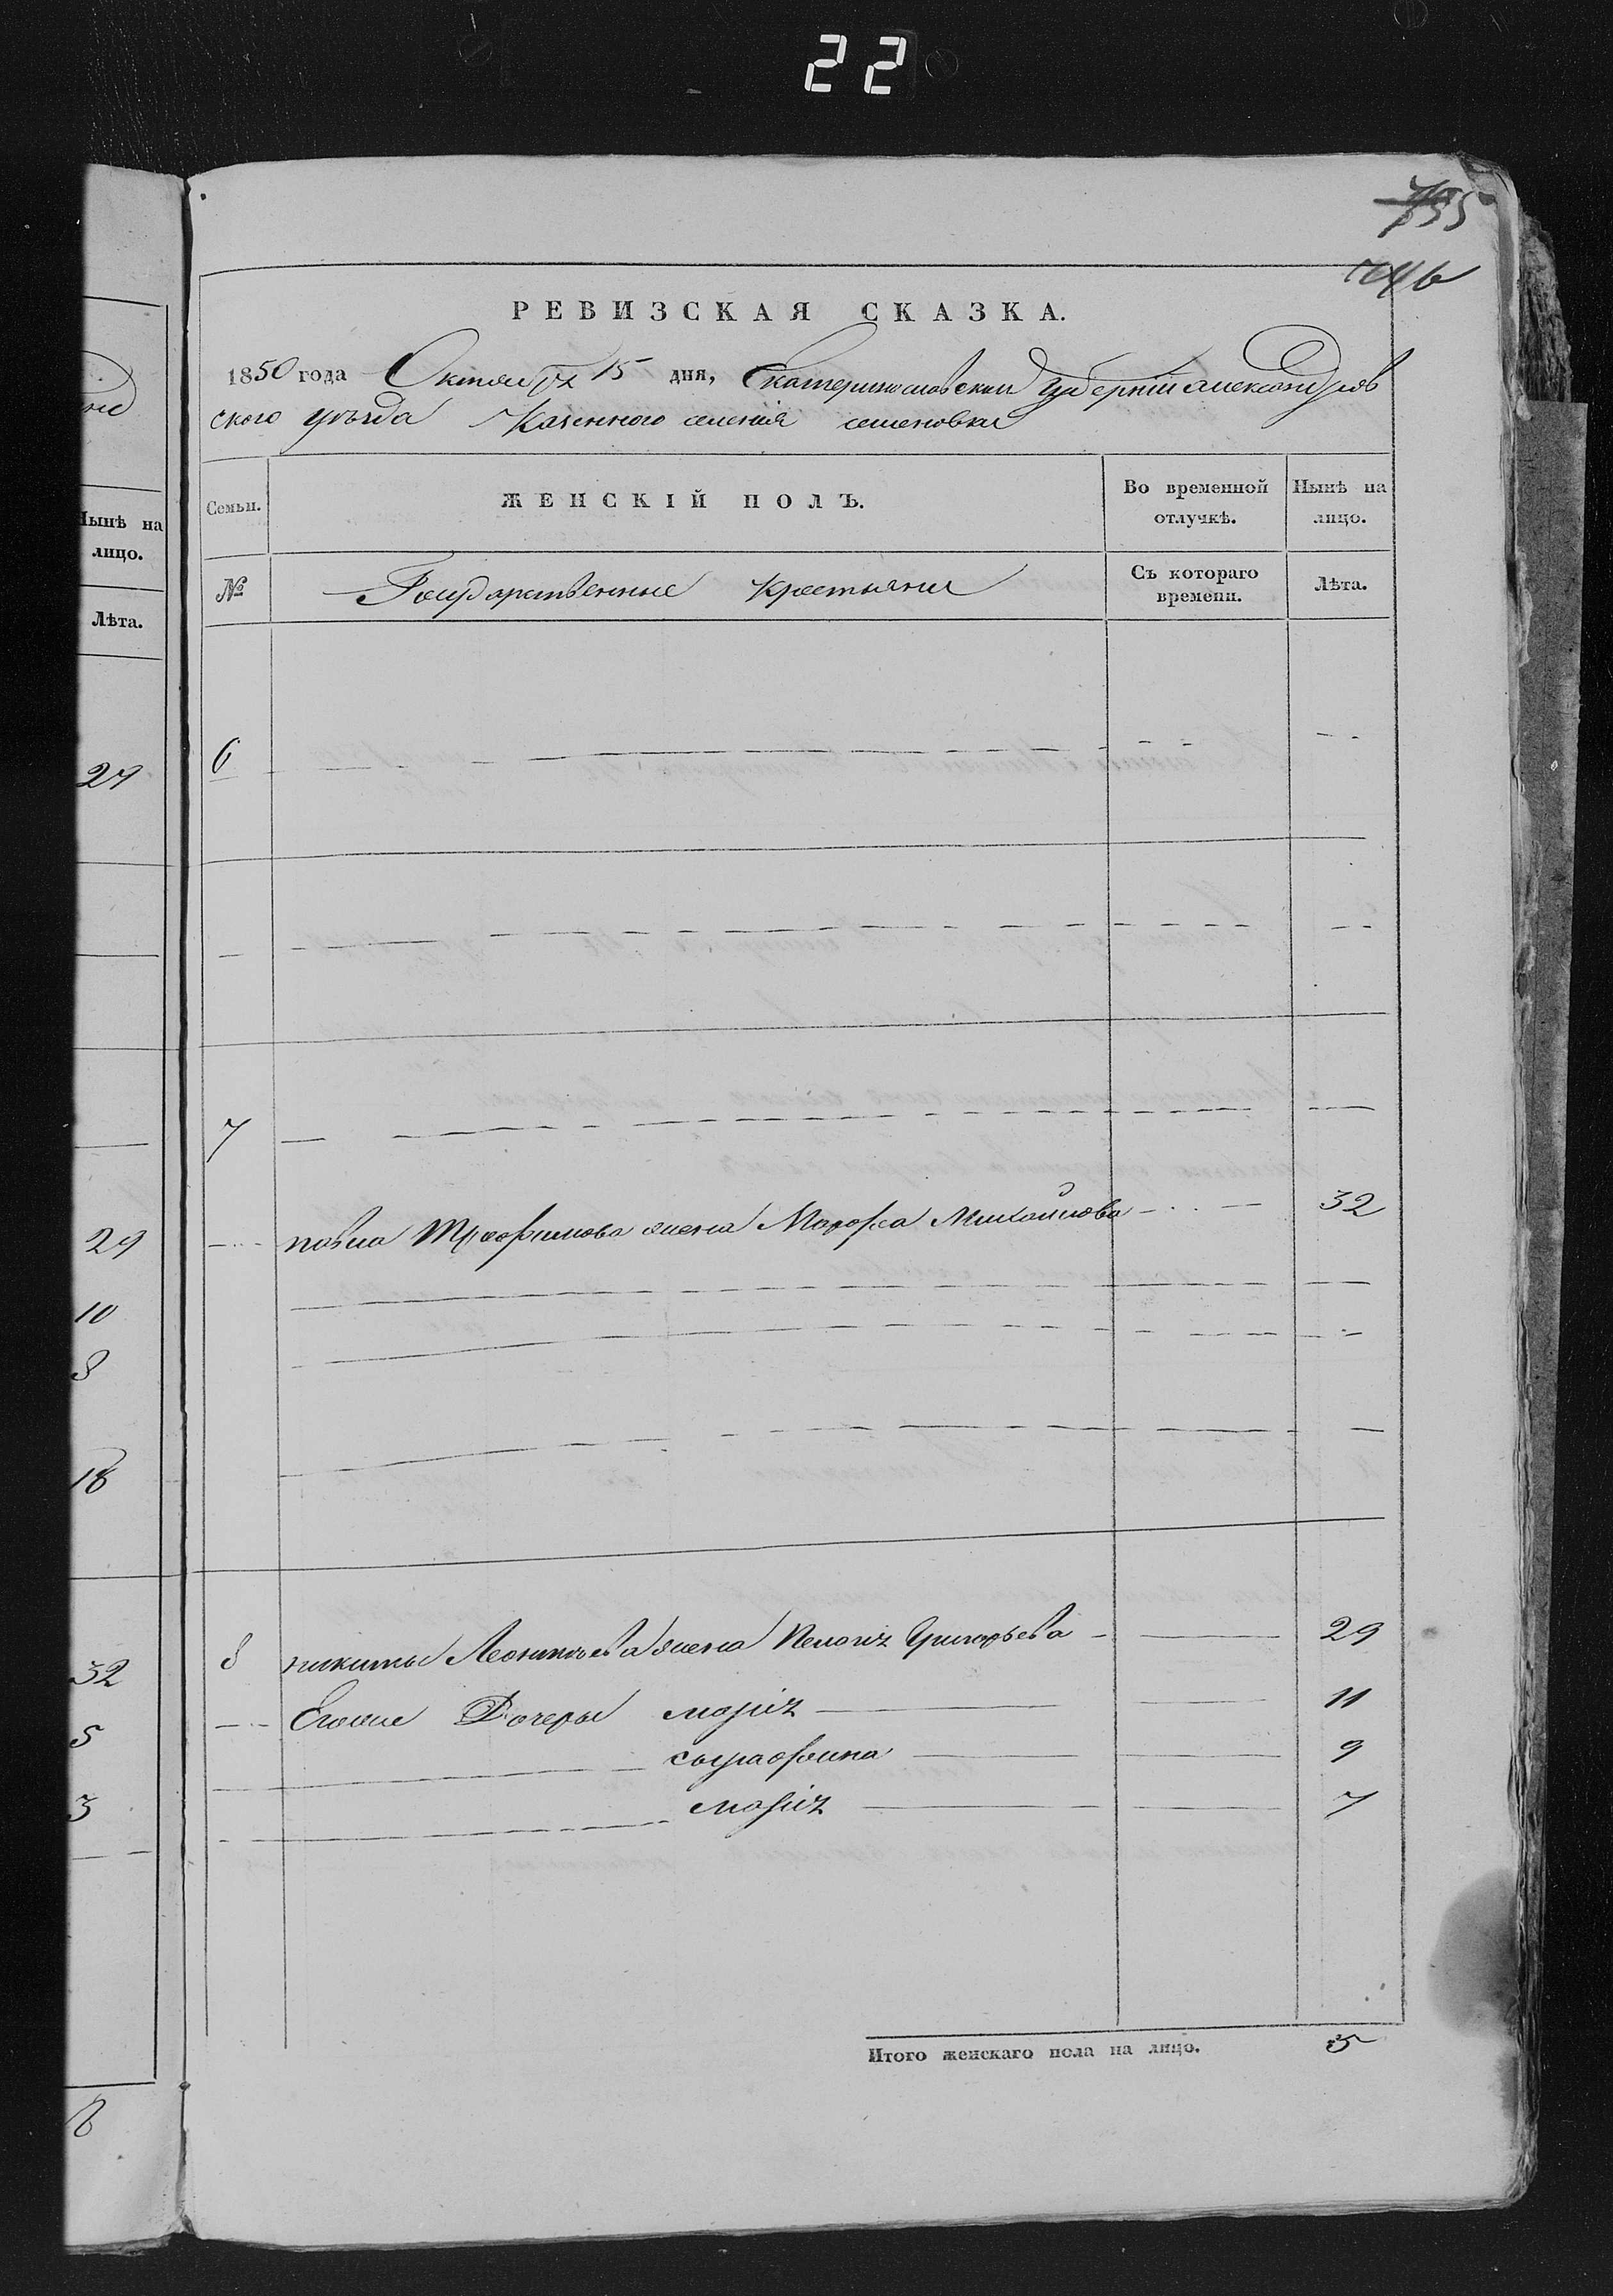 22
755
РЕВИЗСКАЯ СКАЗКА.
1850 года Октября 15 дня, Екатеринославской Губерніи александров
ского уѣзда Казенного селенія семеновки
Нынѣ на лицо.
Лѣта.
Семьи.
ЖЕНСКІЙ ПОЛЪ.
Во временной отлучкѣ.
Нынѣ на лицо.
№
Государственные крестьяне
Съ котораго времени.
Лѣта.
6
7
павла Трофимова жена Марфа Михайлова 32
8 никиты Леонтьева жена Пелагія Григорьева 29
Егоые Дочеры марія 11
сырафина 9
марія 7
Итого женскаго пола на лицо. 5
29
29
10
8
18
32
5
3
8